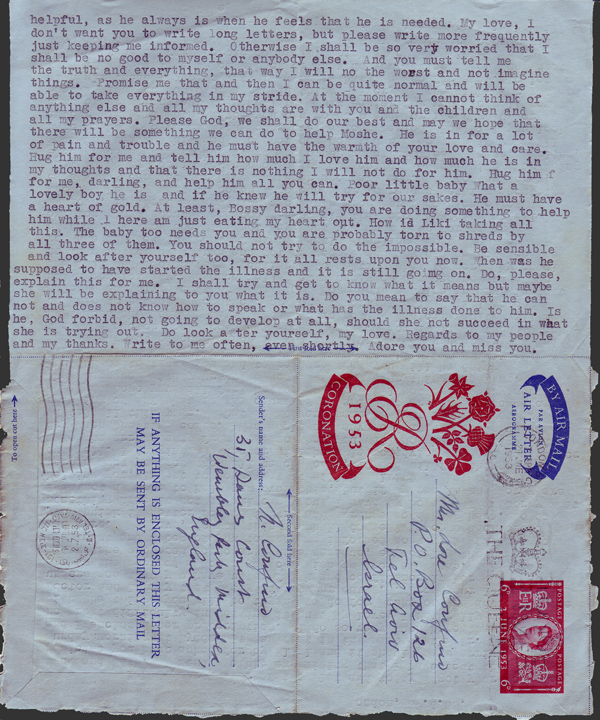 helpful, as he always is when he feels that he is needed. My love, I
don't want you to write long letters, but please write more frequently
just keeping me informed. Otherwise I shall be so very worried that I
shall be no good to myself or anybody else. And you must tell me
the truth and everything, that way I will no the worst and not imagine
things. Promise me that and then I can be quite normal and will be
able to take everything in my stride. At the moment I cannot think of
anything else and all my thoughts are with you and the children and
all my prayers. Please God, we shall do our best and may we hope that
there will be something we can do to help Moshe. He is in for a lot
of pain and trouble and he must have the warmth of your love and care.
Hug him for me and tell him how much I love him and how much he is in
my thoughts and that there is nothing I will not do for him. Hug him f
for me, darling, and help him all you can. Poor little baby what a
lovely boy he is and if he knew he will try for our sakes. He must have
a heart of gold. At least, Bossy darling, you are doing something to help
him while I here am just eating my heart out. How id Liki taking all
this. The baby too needs you and you are probably torn to shreds by
all three of them. You should not try to do the impossible. Be sensible
and look after yourself too, for it all rests upon you now. When was he
supposed to have started the illness and it is still going on. Do, please,
explain this for me. I shall try and get to know what it means but maybe
she will be explaining to you what it is. Do you mean to say that he can
not and does not know how to speak or what has the illness done to him. Is
he, God forbid, not going to develop at all, should she not succeed in what
she is trying out. Do look after yourself, my love. Regards to my people
and my thanks. Write to me often, even shortly. Adore you and miss you.
BY AIR MAIL
PAR AVION
AIR LETTER
AEROGRAMME
CORONATION
1953
ER
POSTAGE
POSTAGE
6D
2 JUNE 1953
6D
THE QUEEN
Mrs. Lose Confino
P.O. Box 126
Tel Aviv
Israel.
Second fold here
Sender's name and address:
N. Confino
35, Deans Court
Wembley Park, Middsex,
England.
IF ANYTHING IS ENCLOSED THIS LETTER
MAY BE SENT BY ORDINARY MAIL
To open cut here